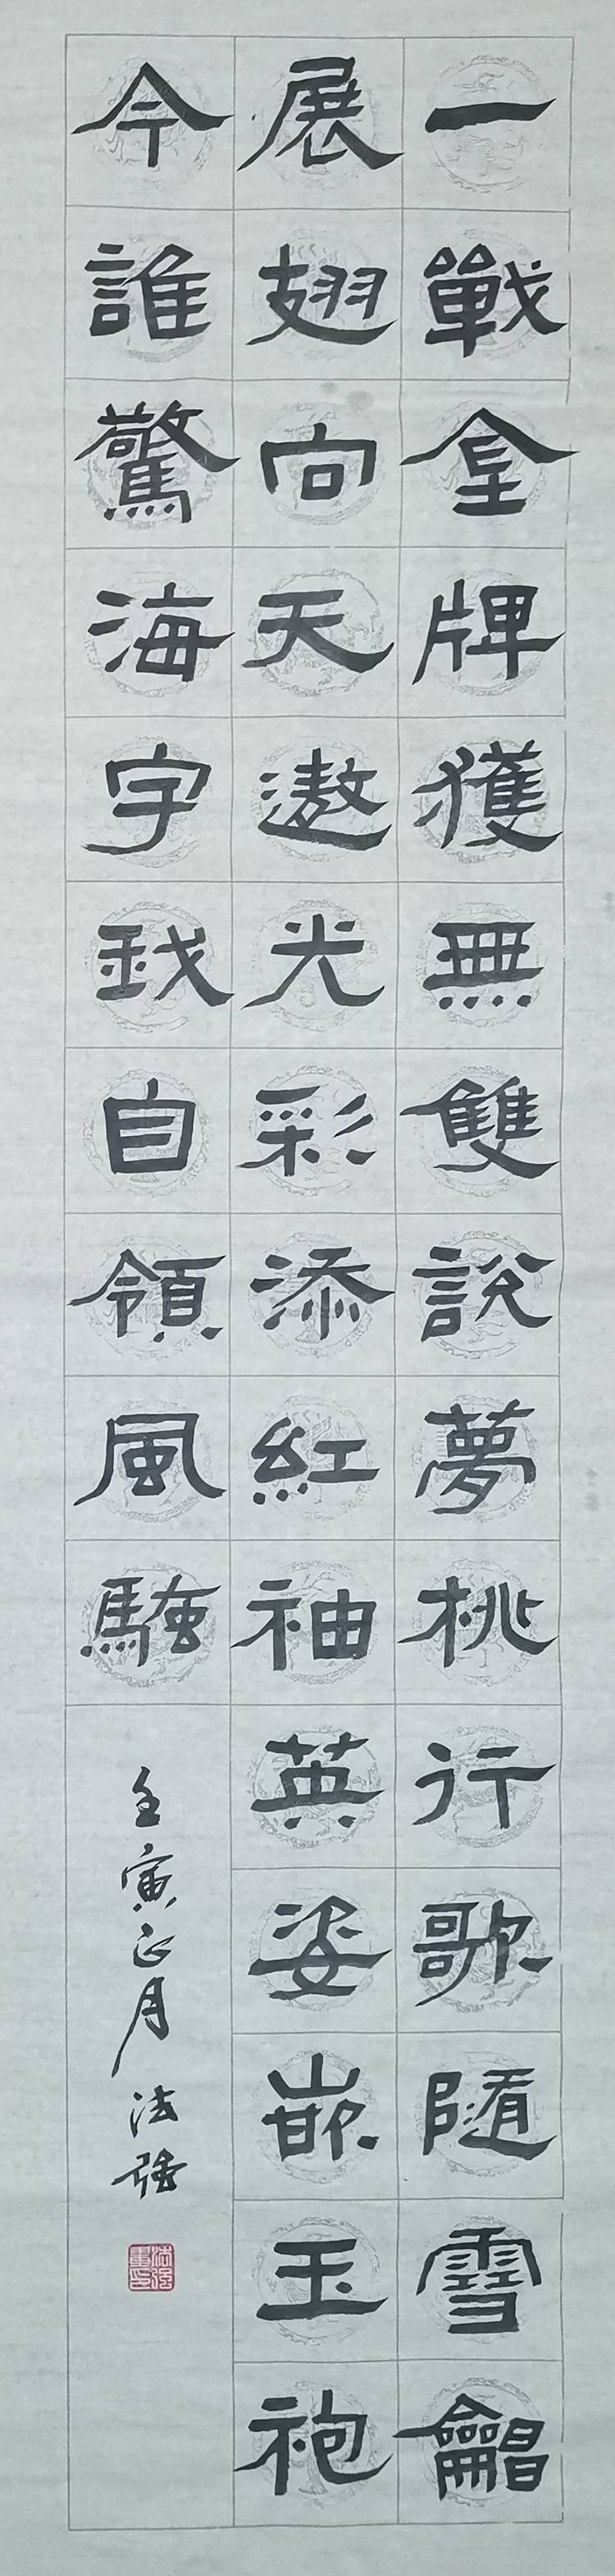 一戰金牌獲無雙說夢桃行歌隨雪
展翅向天遨光彩添紅袖英姿嵌玉袍
今誰驚海宇我自領風騷
壬寅正月法強